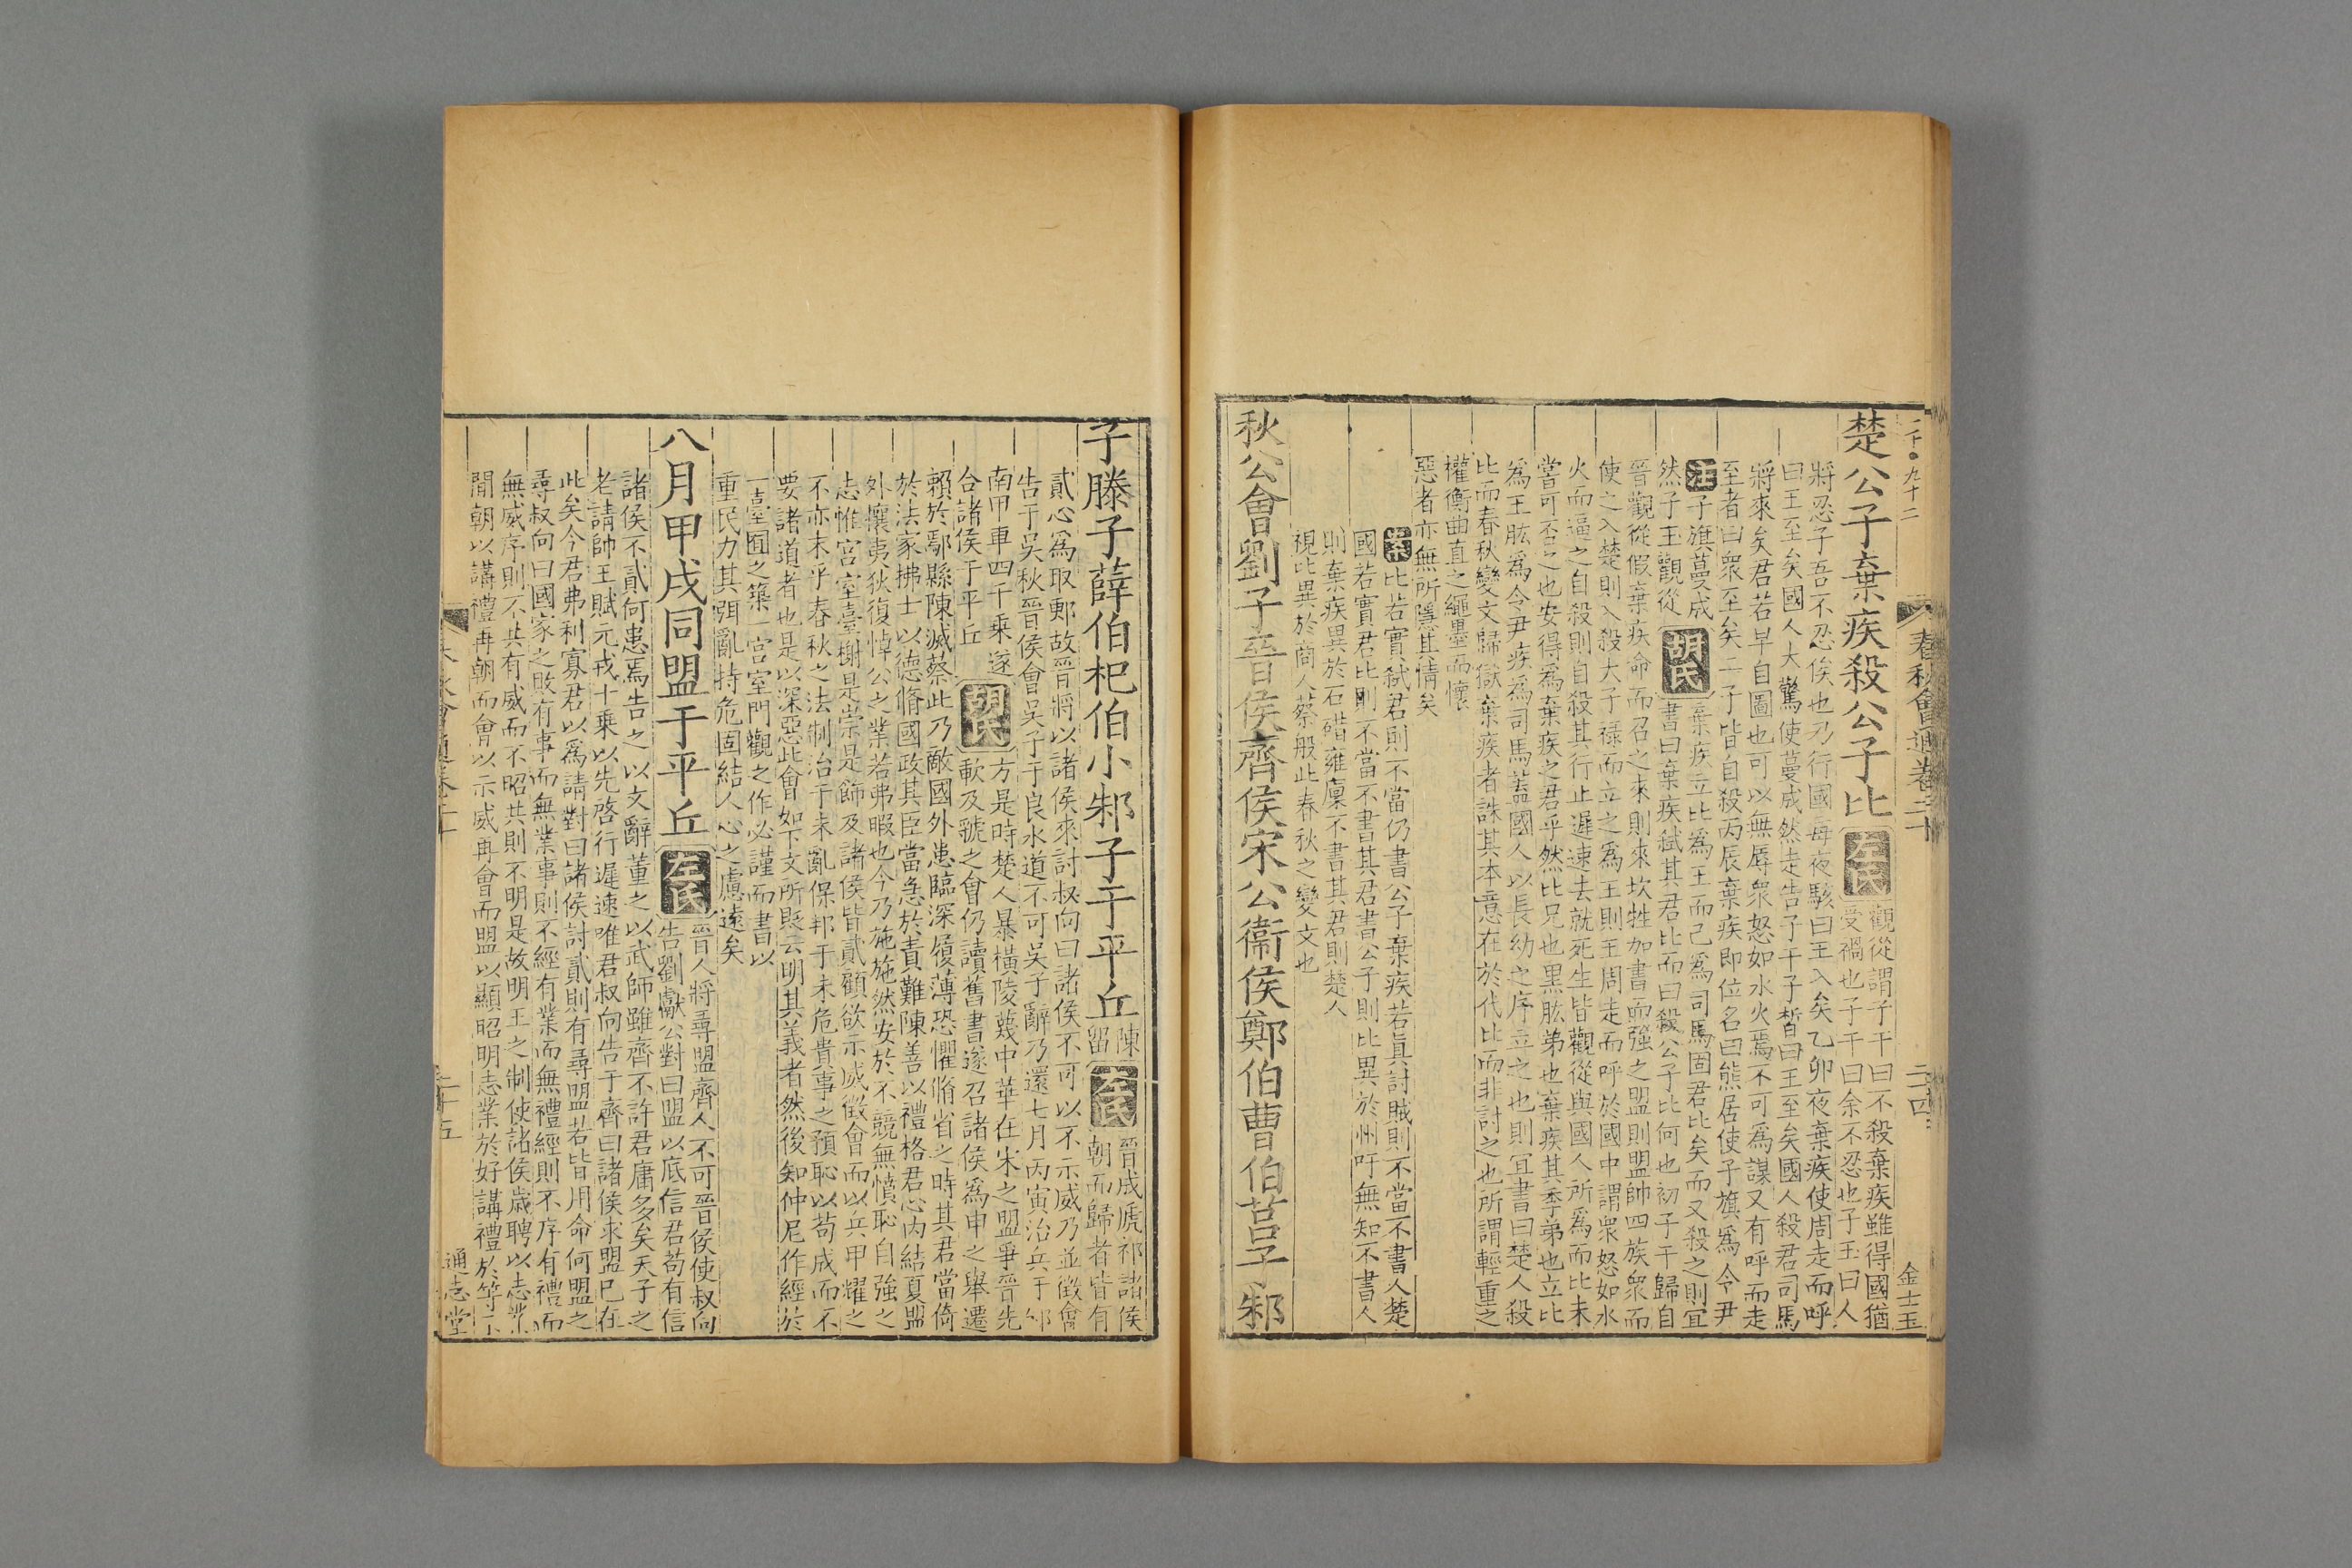 春秋會通卷二十
二十四
金士玉
楚公子棄疾殺公子比 左氏 觀從謂子干曰不殺棄疾雖得國猶
受禍也子干曰余不忍也子玉曰人
將忍子吾不忍俟也乃行國每夜駭曰王入矣乙卯夜棄疾使周走而呼
曰王至矣國人大驚使蔓成然走告子干子晳曰王至矣國人殺君司馬
將來矣君若早自圖也可以無辱衆怒如水火焉不可爲謀又有呼而走
至者曰衆至矣二子皆自殺丙辰棄疾即位名曰熊居使子旗爲令尹
注 子旗蔓成
然子玉觀從
胡氏 棄疾立比爲王而己爲司馬固君比矣而又殺之則宜
書曰棄疾弒其君比而曰殺公子比何也初子干歸自
晉觀從假棄疾命而召之來則來坎牲加書而強之盟則盟帥四族衆而
使之入楚則入殺大子祿而立之爲王則王周走而呼於國中謂衆怒如水
火而逼之自殺則自殺其行止遲速去就死生皆觀從與國人所爲而比未
嘗可否之也安得爲棄疾之君乎然比兄也黑肱弟也棄疾其季弟也立比
爲王肱爲令尹疾爲司馬蓋國人以長幼之序立之也則宜書曰楚人殺
比而春秋變文歸獄棄疾者誅其本意在於代比而非討之也所謂輕重之
權衡曲直之繩墨而懷
惡者亦無所隱其情矣
案 比若實弒君則不當仍書公子棄疾若眞討賊則不當不書人楚
國若實君比則不當不書其君書公子則比異於州吁無知不書人
則棄疾異於石碏雍廩不書其君則楚人
視比異於商人蔡般此春秋之變文也
秋公會劉子晉侯齊侯宋公衞侯鄭伯曹伯莒子邾
子滕子薛伯杞伯小邾子于平丘 陳
留
左氏 晉成虒祁諸侯
朝而歸者皆有
貳心爲取郠故晉將以諸侯來討叔向曰諸侯不可以不示威乃並徵會
告于吳秋晉侯會吳子于良水道不可吳子辭乃還七月丙寅治兵于邾
南甲車四千乘遂
合諸侯于平丘
胡氏 方是時楚人暴橫陵蔑中華在宋之盟爭晉先
歃及虢之會仍讀舊書遂召諸侯爲申之舉遷
賴於鄢縣陳滅蔡此乃敵國外患臨深履薄恐懼脩省之時其君當倚
於法家拂士以德脩國政其臣當急於責難陳善以禮格君心内結夏盟
外攘夷狄復悼公之業若弗暇也今乃施施然安於不競無憤恥自強之
志惟宮室臺榭是崇是飾及諸侯皆貳顧欲示威徵會而以兵甲耀之
不亦末乎春秋之法制治于未亂保邦于未危貴事之預恥以苟成而不
要諸道者也是以深惡此會如下文所貶云明其義者然後知仲尼作經於
一臺囿之築一宮室門觀之作必謹而書以
重民力其弭亂持危固結人心之慮遠矣
八月甲戌同盟于平丘 左氏 晉人將尋盟齊人不可晉侯使叔向
告劉獻公對曰盟以底信君苟有信
諸侯不貳何患焉告之以文辭董之以武師雖齊不許君庸多矣天子之
老請帥王賦元戎十乘以先啓行遲速唯君叔向告于齊曰諸侯求盟已在
此矣今君弗利寡君以爲請對曰諸侯討貳則有尋盟若皆用命何盟之
尋叔向曰國家之敗有事而無業事則不經有業而無禮經則不序有禮而
無威序則不共有威而不昭共則不明是故明王之制使諸侯歲聘以志業
間朝以講禮再朝而會以示威再會而盟以顯昭明志業於好講禮於等示
二十五
通志堂